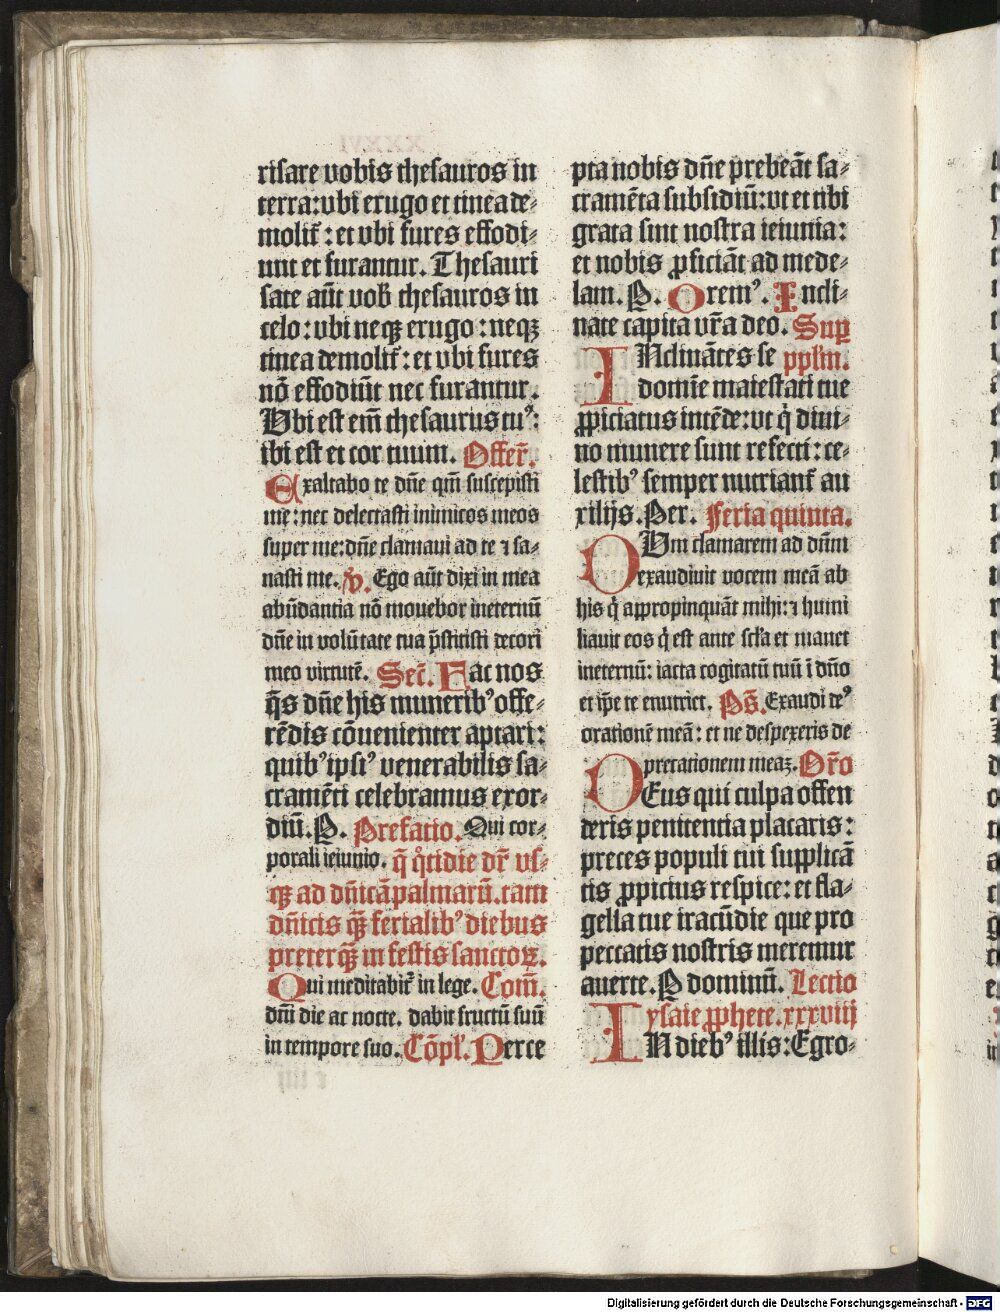 risare vobis thesauros in
terra: vbi erugo et tinea de⸗
molit᷑: et vbi fures effodi⸗
unt et furantur. Thesauri
sate aūt vob̄ thesauros in
celo: vbi neqꝫ erugo: neqꝫ
tinea demolit᷑: et vbi fures
nō effodiūt nec furantur.
Vbi est em̄ thesaurus tuꝰ:
ibi est et cor tuum. Offer̄.
Exaltabo te dn̄e qm̄ suscepisti
me: nec delectasti inimicos meos
super me: dn̄e clamaui ad te ⁊ sa⸗
nasti me. v̄. Ego aūt dixi in mea
abūdantia nō mouebor ineternū
dn̄e in volūtate tua p̄stitisti decori
meo virtutē. Secr̄. Hac nos
q̄s dn̄e his muneribꝰ offe⸗
rēdis cōuenienter aptari:
quibꝰ ipsiꝰ venerabilis sa⸗
cramēti celebramus exor⸗
diū. P. Prefatio. Qui cor⸗
porali ieiunio. q̄ q̊tidie dr̄ vs⸗
qꝫ ad dn̄icā palmarū. tam
dn̄icis qꝫ̄ ferialibꝰ diebus
preterqꝫ̄ in festis sanctoꝝ.
Qui meditabit᷑ in lege. Com̄.
dn̄i die ac nocte. dabit fructū suū
in tempore suo. Cōpl̄. Perce
pta nobis dn̄e prebeāt sa⸗
cramēta subsidiū: vt et tibi
grata sint nostra ieiunia:
et nobis ꝓficiāt ad mede⸗
lam. P. Oremꝰ. Incli⸗
nate capita vr̄a deo. Suꝑ
INclinātes se pplm̄.
domie maiestati tue
ꝓpiciatus intēde: vt q̇ diui⸗
no munere sunt refecti: ce⸗
lestibꝰ semper nutriant᷑ au
xilijs. Per. Feria quinta.
DVm clamarem ad dn̄m
exaudiuit vocem meā ab
his q̇ appropinquāt mihi: ⁊ humi
liauit eos q̇ est ante scl̄a et manet
ineternū: iacta cogitatū tuū ī dn̄o
et ip̄e te enutriet. Ps̄. Exaudi deꝰ
orationē meā: et ne despexeris de
precationem meaꝫ. Or̄o
DEus qui culpa offen
deris penitentia placaris:
preces populi tui supplicā
tis ꝓpicius respice: et fla⸗
gella tue iracūdie que pro
peccatis nostris meremur
auerte. P dominū. Lectio
ysaie ꝓphete. xxxviij
IN diebꝰ illis: Egro⸗
Digitalisierung gefördert durch die Deutsche Forschungsgemeinschaft - DFG